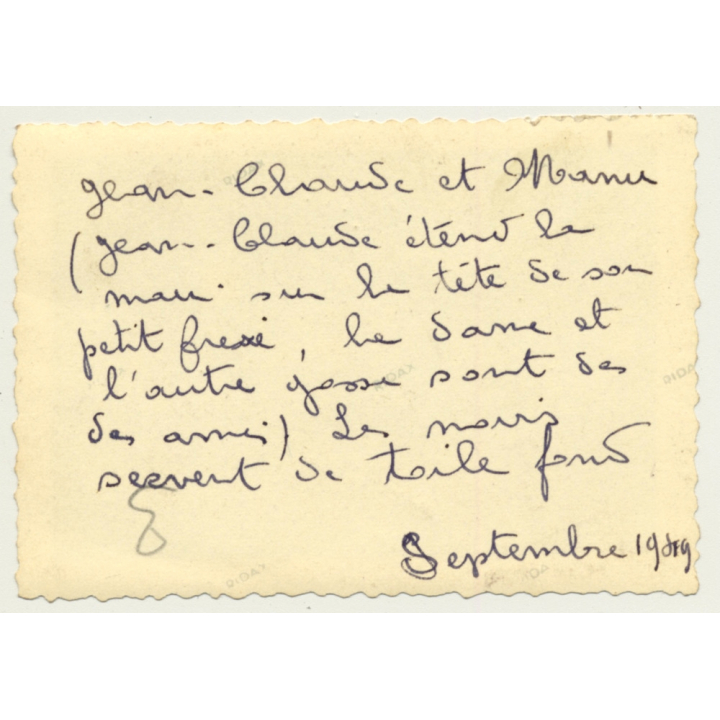 Jean-Claude et Manu
(Jean-Claude étend la
main sur la tête de son
petit frere, la dame et
l'autre gosse sont des
des amis) Les noirs
servent de toile fond
8
Septembre 19
RIDAX
RIDAX
RIDAX